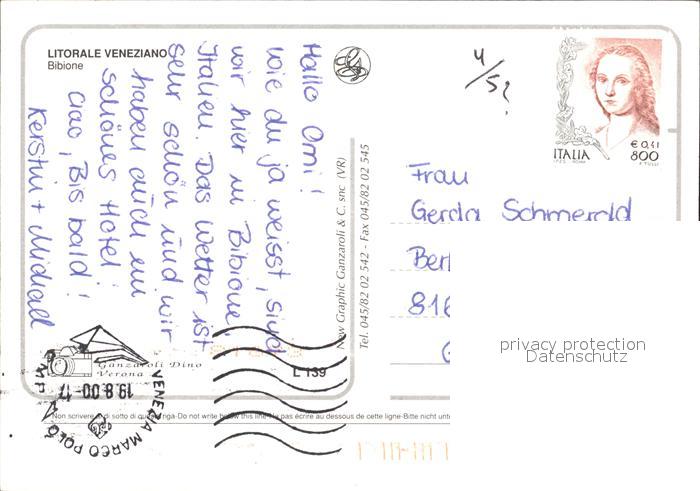 LITORALE VENEZIANO
Bibione
Hallo Omi!
wie du ja weisst, sind
wir hier in Bibione,
Italien. Das Wetter ist
sehr schön und wir
haben auch ein
schönes Hotel!
Ciao, Bis bald!
Kerstin + Michael
4/5?
€ 0,41
ITALIA 800
Frau
Gerda Schmerold
Berl
816
G
privacy protection
Datenschutz
New Graphic Ganzaroli & C. snc (VR)
Tel. 045/82 02 542 - Fax 045/82 02 545
Ganzaroli Dino
Verona
L 139
VENEZIA MARCO POLO
19.8.00-17
Non scrivere di sotto di questa riga-Do not write below this line-Ne pas écrire au dessous de cette ligne-Bitte nicht unt